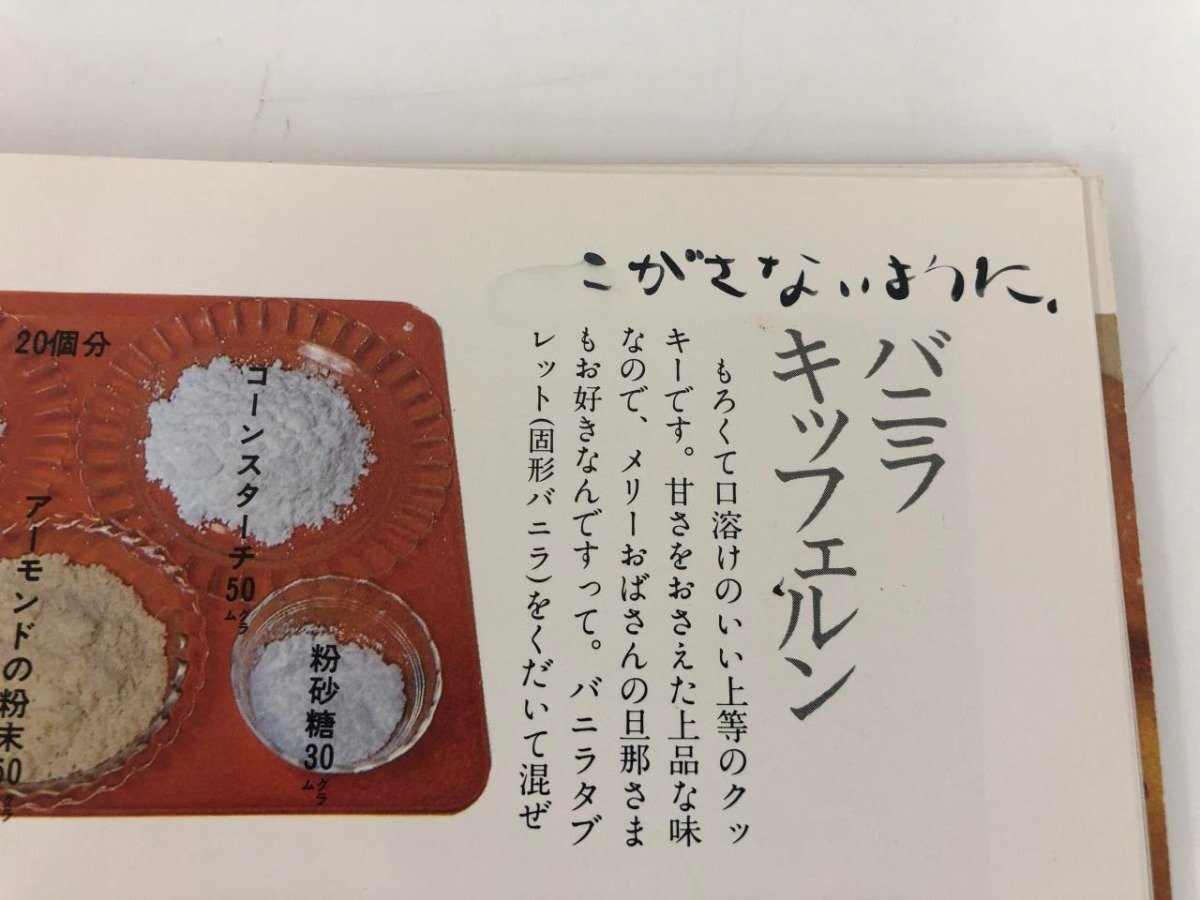 こがさないように、
バニラ
キッフェルン
もろくて口溶けのいい上等のクッ
キーです。甘さをおさえた上品な味
なので、メリーおばさんの旦那さま
もお好きなんですって。バニラタブ
レット(固形バニラ)をくだいて混ぜ
20個分
コーンスターチ50グラム
粉砂糖30グラム
アーモンドの粉末50グラ